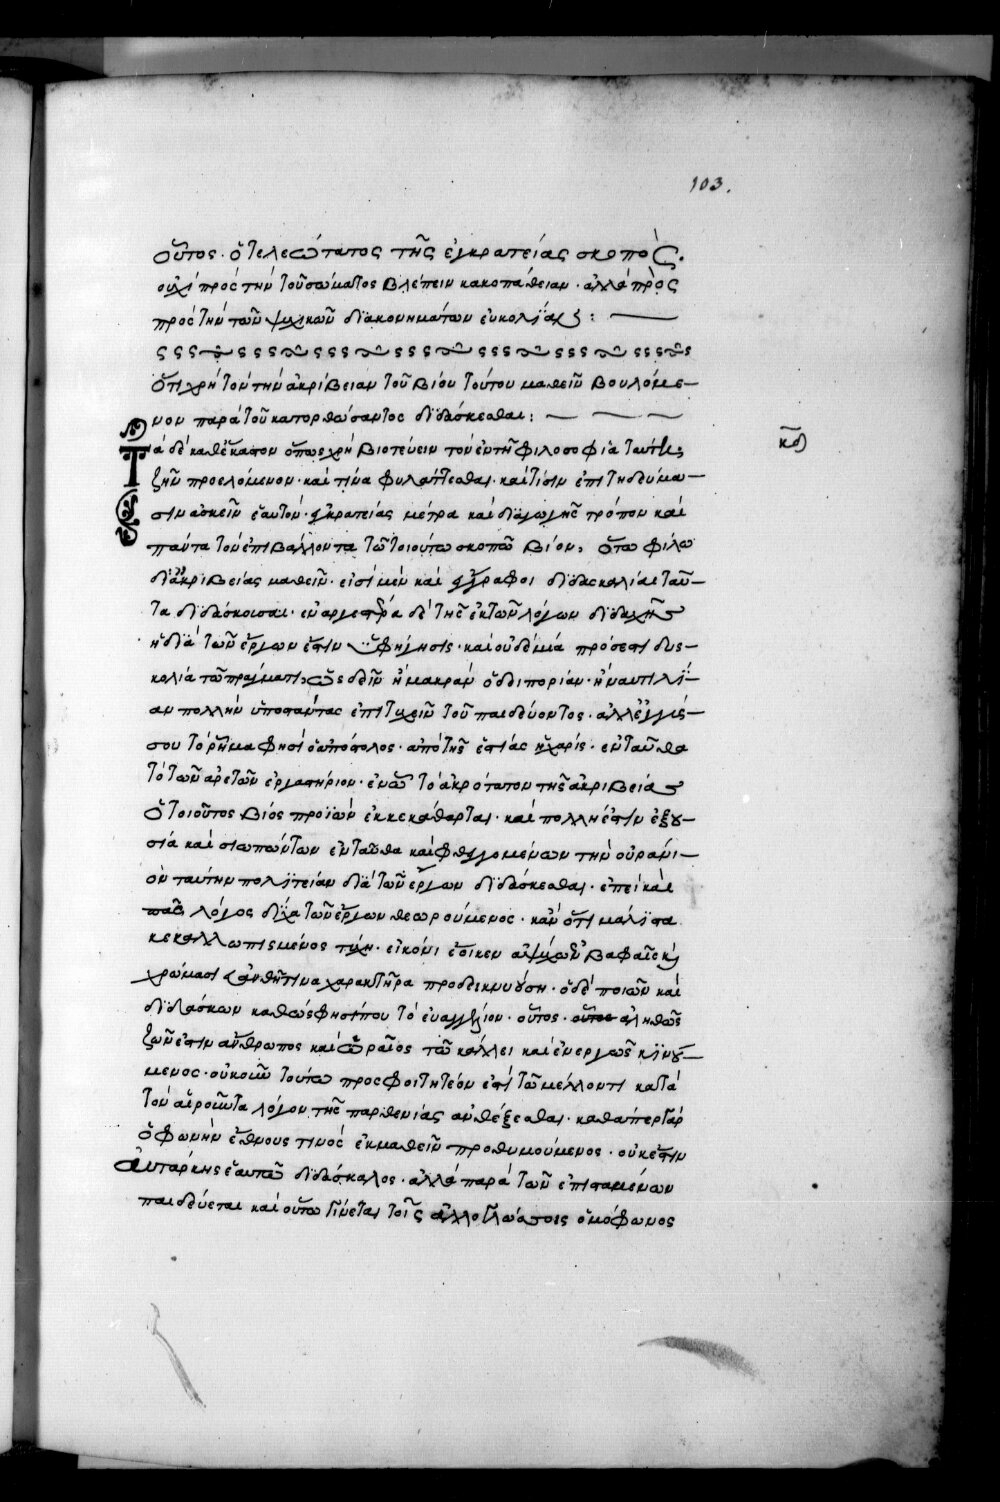 103.
οὗτος · ὁ τελεώτατος τῆς ἐγκρατείας σκοπός.
οὐχὶ πρὸς τὴν τοῦ σώματος βλέπειν κακοπάθειαν · ἀλλὰ πρὸς
πρὸς τὴν τῶν ψυχικῶν διακονημάτων εὐκολίας :
ὅτι χρὴ τὸν τὴν ἀκρίβειαν τοῦ βίου τούτου μαθεῖν βουλόμε–
νον παρὰ τοῦ κατορθώσαντος διδάσκεσθαι :
Τὰ δὲ καθέκαστον ὅπως χρὴ βιοτεύειν τὸν ἐν τῇ φιλοσοφίᾳ ταύτῃ
κδ
ζῆν προελόμενον · καὶ τίνα φυλάττεσθαι · καὶ τίσιν ἐπιτηδεύμα–
σιν ἀσκεῖν ἑαυτόν · ἐγκρατείας μέτρα καὶ διαγωγῆς τρόπον καὶ
πάντα τὸν ἐπιβάλλοντα τῷ τοιούτῳ σκοπῷ βίον, ὅτω φίλω
δι ἀκριβείας μαθεῖν · εἰσὶ μὲν καὶ ἔγγραφοι διδασκαλίαι ταῦ–
τα διδάσκουσαι · ἐναργεστέρα δὲ τῆς ἐκ τῶν λόγων διδαχῆς
ἡ διὰ τῶν ἔργων ἐστὶν ὑφήγησις · καὶ οὐδεμία πρόσεστι δυς–
κολία τῷ πράγματι, ὡς δεῖν ἢ μακρὰν ὁδιπορίαν · ἢ ναυτιλί–
αν πολλὴν ὑποστάντας ἐπιτυχεῖν τοῦ παιδεύοντος · ἀλλ ἐγγύς–
σου τὸ ῥῆμα φησὶ ὁ ἀπόστολος · ἀπὸ τῆς ἑστίας ἡ χάρις · ἐνταῦθα
τὸ τῶν ἀρετῶν ἐργαστήριον · ἐν ᾧ τὸ ἀκρότατον τῆς ἀκριβείας
ὁ τοιοῦτος βίος προϊὼν ἐκκεκάθαρται · καὶ πολλὴ ἐστὶν ἐξου–
σία καὶ σιωπώντων ἐνταῦθα καὶ φθεγγομένων τὴν οὐράνι–
ον ταύτην πολιτείαν διὰ τῶν ἔργων διδάσκεσθαι · ἐπεὶ καὶ
πᾶς λόγος δίχα τῶν ἔργων θεωρούμενος · κἂν ὅτι μάλιστα
κεκαλλωπισμένος τύχη · εἰκόνι ἔοικεν ἀψύχω ἐν βαφαῖς καὶ
χρώμασι εὐανθῆ τινα χαρακτῆρα προδεικνυούση · ὁ δὲ ποιῶν καὶ
διδάσκων καθὼς φησί που τὸ εὐαγγέλιον · οὗτος · οὗτος ἀληθῶς
ζῶν ἐστιν ἄνθρωπος καὶ ὡραῖος τῷ κάλλει καὶ ἐνεργῶς κινού–
μενος · οὐκοῦν τούτω προσφοιτητέον ἐστὶ τῷ μέλλοντι κατὰ
τὸν αἱροῦντα λόγον τῆς παρθενίας ἀνθέξεσθαι · καθάπερ γὰρ
ὁ φωνὴν ἔθνους τινὸς ἐκμαθεῖν προθυμούμενος · οὐκ ἔστιν
αὐτάρκης ἑαυτῷ διδάσκαλος · ἀλλὰ παρὰ τῶν ἐπισταμένων
παιδεύεται καὶ οὕτω γίνεται τοῖς ἀλλογλώσσοις ὁμόφωνος